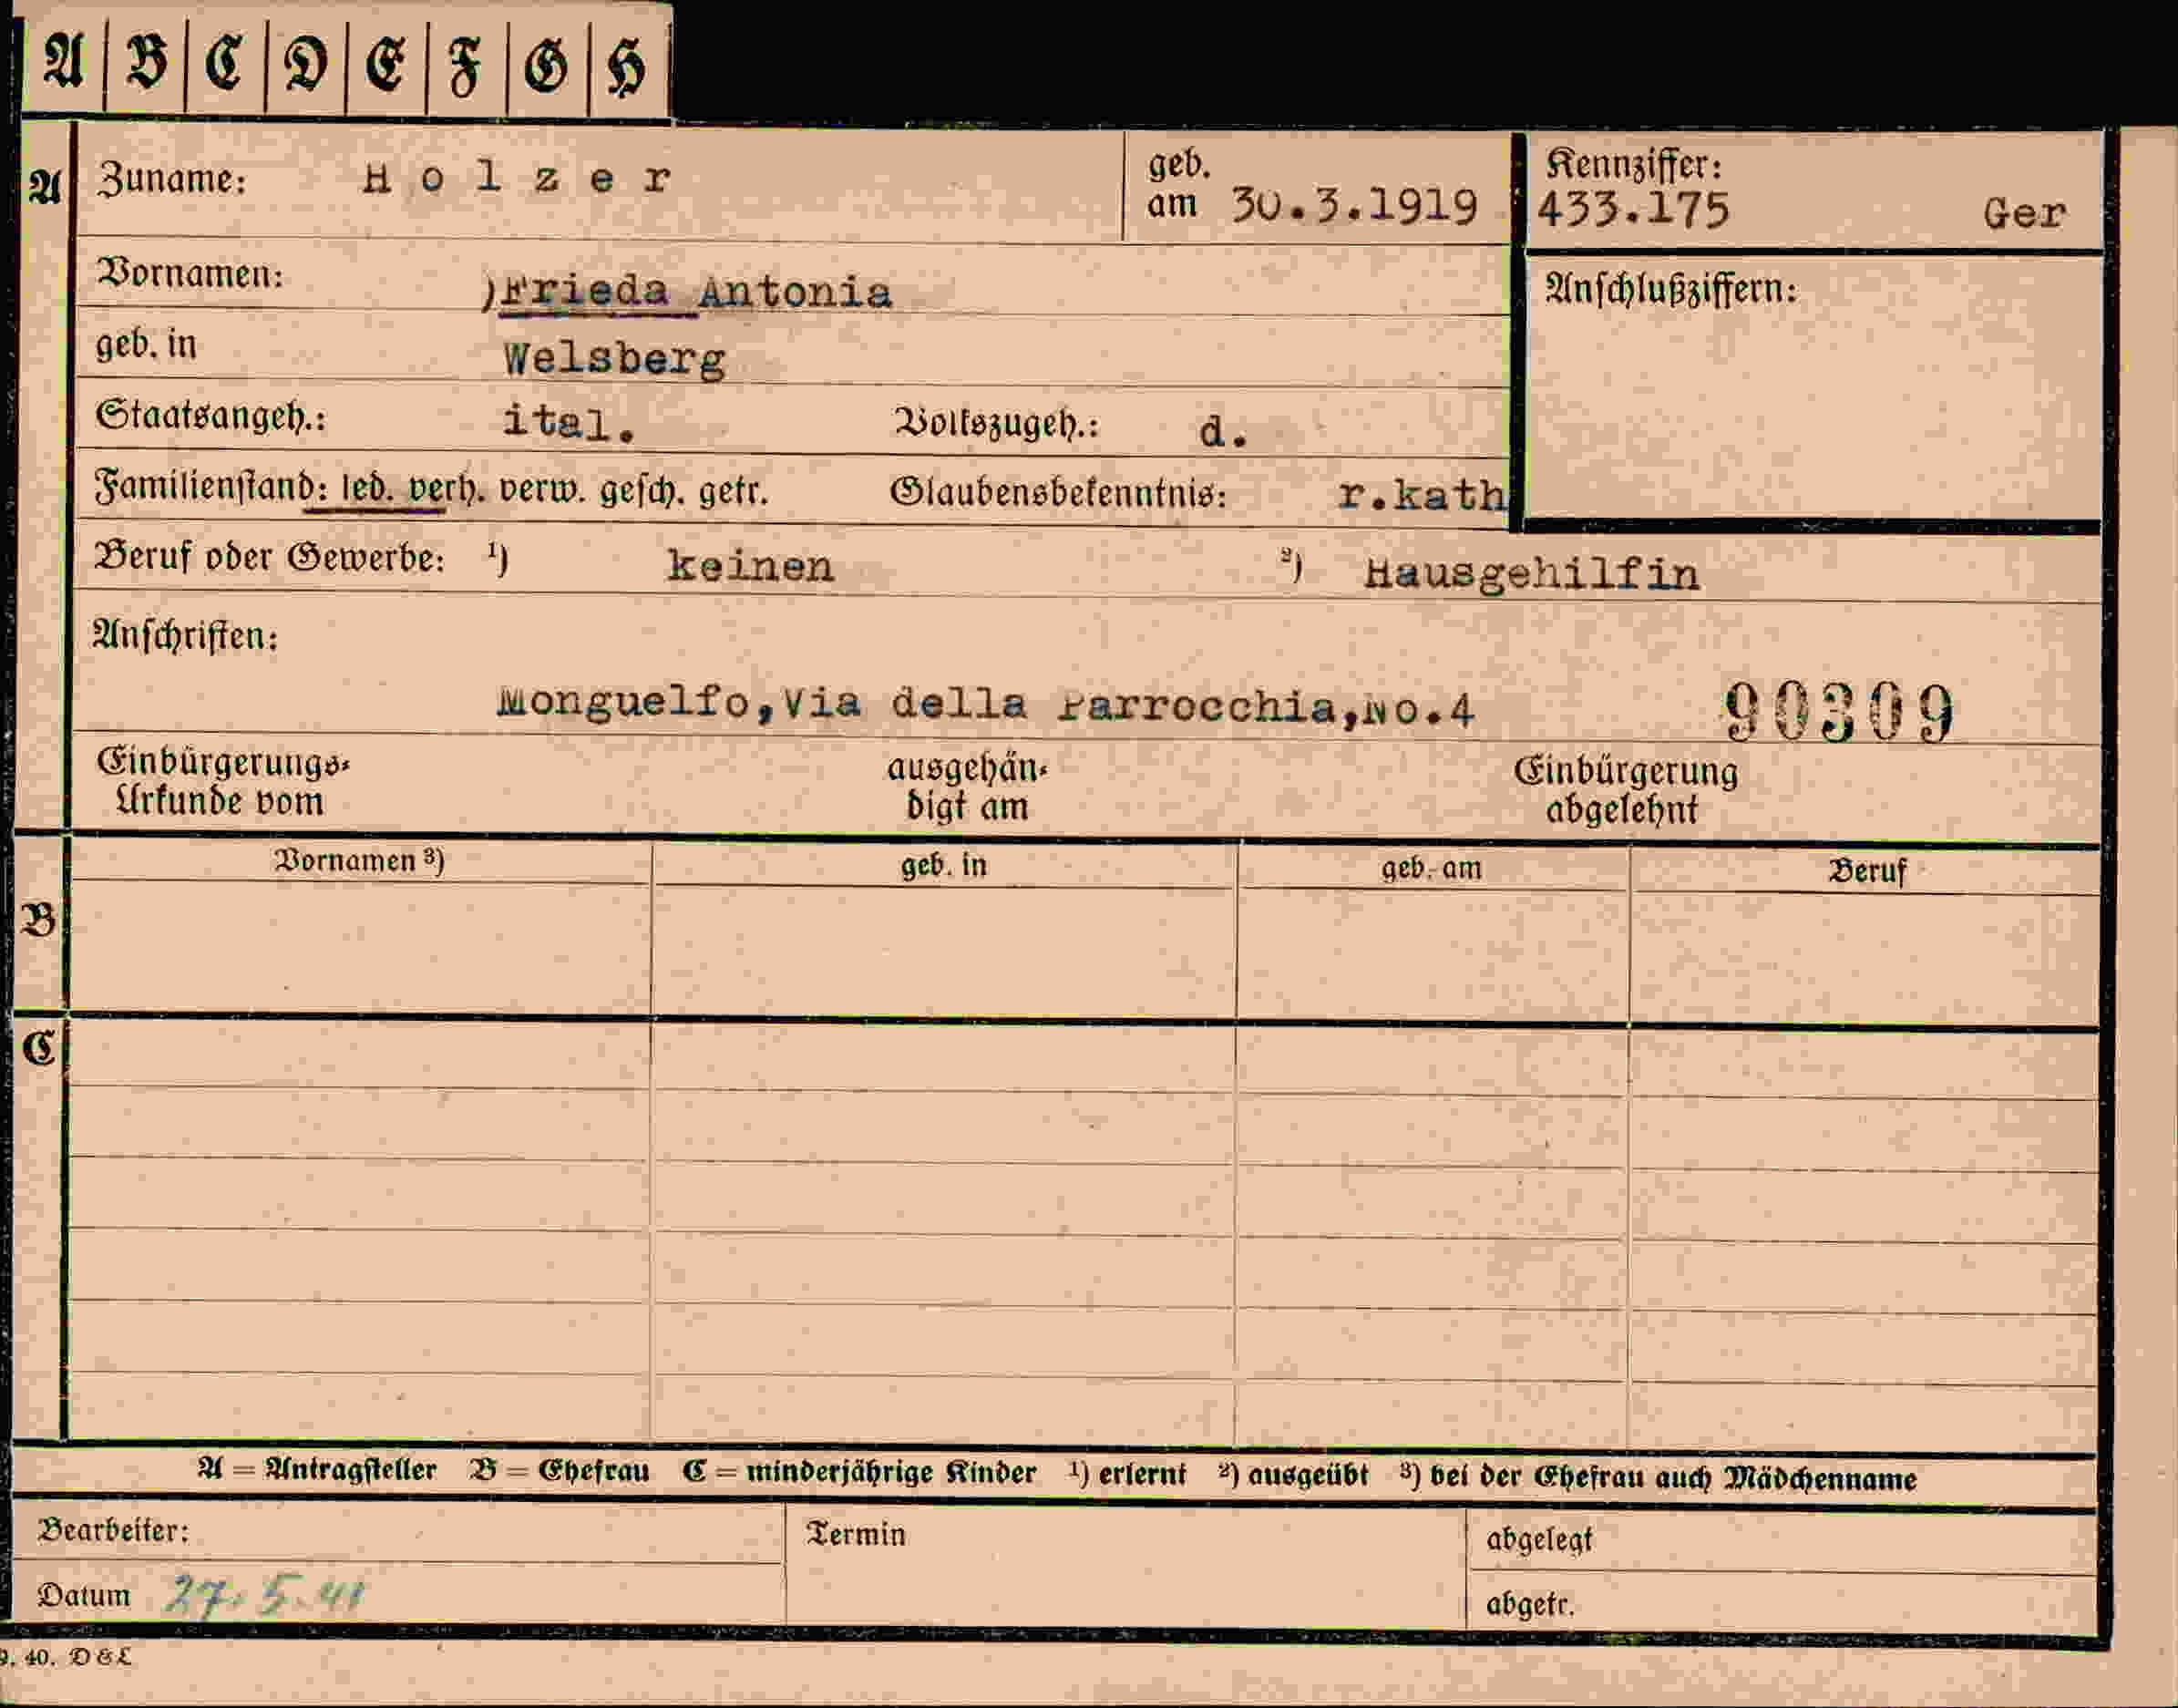 A B C D E F G H
A Zuname: Holzer geb. am 30.3.1919 Kennziffer: 433.175 Ger
Vornamen: )Frieda Antonia Anschlußziffern:
geb. in Welsberg
Staatsangeh.: ital. Volkszugeh.: d.
Familienstand: led. verh. verw. gesch. getr. Glaubensbekenntnis: r.kath
Beruf oder Gewerbe: ¹) keinen ²) Hausgehilfin
Anschriften:
Monguelfo,Via della Parrocchia,No.4 90309
Einbürgerungs- ausgehän- Einbürgerung
Urkunde vom digt am abgelehnt
Vornamen ³) geb. in geb. am Beruf
B
C
A = Antragsteller B = Ehefrau C = minderjährige Kinder ¹) erlernt ²) ausgeübt ³) bei der Ehefrau auch Mädchenname
Bearbeiter: Termin abgelegt
Datum 27. 5. 41 abgetr.
9. 40. D & L